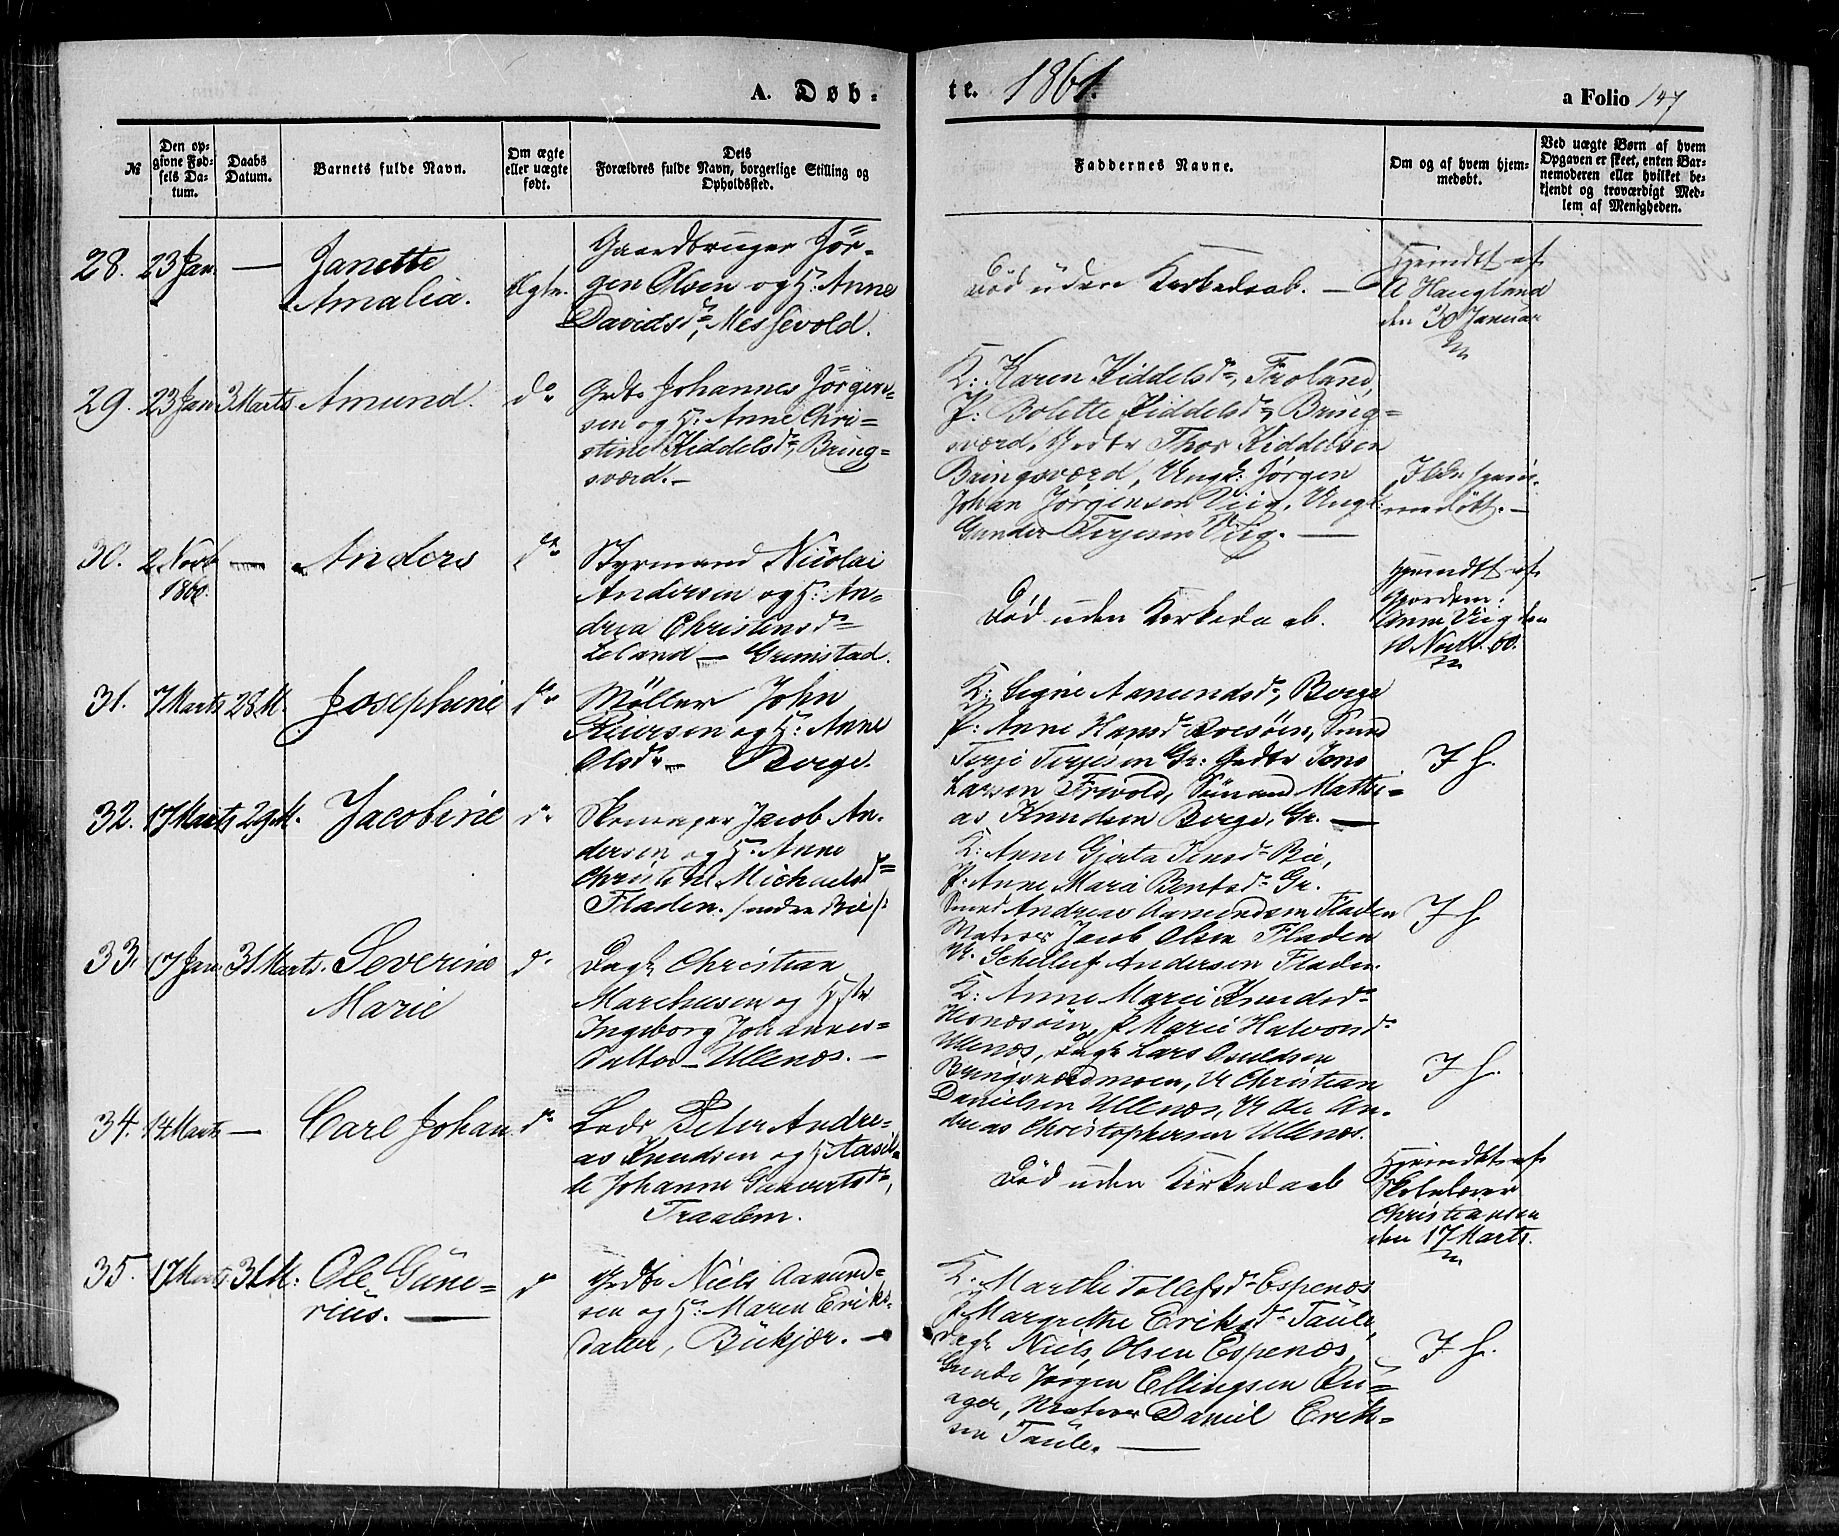 A. Døb-
te. 1861.
a Folio 147
№
Den op-
givne Fød-
sels Da-
tum.
Daabs
Datum.
Barnets fulde Navn.
Om ægte
eller uægte
født.
Dets
Forældres fulde Navn, borgerlige Stilling og
Opholdssted.
Faddernes Navne.
Om og af hvem hjem-
medøbt.
Ved uægte Børn af hvem
Opgaven er skeet, enten Bar-
nemoderen eller hvilket be-
kjendt og troværdigt Med-
lem af Menigheden.
28. 23 Jan. — Janette
Amalia.
Ægte.
Gaardbruger Jör-
gen Olsen og H: Anne
Davidsdr, Messevold.
Död uden Kirkedaab. —
Hjemdbt af
A Haugland
den 30 Januar
29. 23 Jan 3 Marts Amund. do
Grdbr Johannes Jörgen-
sen og H: Anne Chri-
stine Kiddelsdr, Bring-
sværd. —
K: Karen Kiddelsdr, Froland,
P: Bolette Kiddelsdr Bring-
sværd, Grdbr Thor Kiddelsen
Bringsværd, Ungk: Jörgen
Johan Jörgensen Viig, Ungk:
Gunder Terjesen Viig. —
Ikke hjem-
medöbt. —
30. 2 Novb
1860. — Anders do
Styrmand Nicolai
Andersen og H: An-
drea Christensdr
Leland — Grimstad.
Död uden Kirkedaab.
Hjemdbt af
Gjordem:
Anne Viig den
10 Novb. 60.
31. 7 Marts 28 M. Josephine do
Möller John
og H: Anne
Olsdr — Berge.
K: Signe Aamundsdr, Berge
P: Anne Hansdr Smed
Terje Terjesen Gr: Grdbr Jens
Larsen Frivold, Sömand Mathi-
as Knudsen Berge, Gr. —
I H.
32. 17 Marts 29 M. Jacobine do
Skomager Jacob An-
dersen og H: Anne
Christine Michaelsdr
Fladen. /nedre Bie/:
K: Anne Gjerta Jensdr Bie,
P: Anne Marie Bentsdr Gr.
Smed Andreas Aamundsen Fladen
Matros Jacob Olsen Fladen
U. Andersen Fladen.
I H.
33. 17 Jan 31 Marts. Severine
Marie
do
Dagl: Christian
Marcussen og Hstr
Ingeborg Johannes-
datter — Ullenæs. —
K: Anne Marie Knudsdr
P. Marie Halvorsdr
Ullenæs, Dagl: Lars Osuldsen
Bringsværdmoen, U Christian
Danielsen Ullenæs, U Ole An-
dreas Christophersen Ullenæs.
I H.
34. 14 Marts — Carl Johan do
Lods Peter Andre-
as Knudsen og H
Johanne
Död uden Kirkedaab
Hjemdbt af
Skolelærer
Christiansen
den 17 Marts.
35. 17 Marts 31 M: Ole Gune-
rius. —
do
Grdbr Niels Aamund-
sen og H: Maren Eriks-
datter, Bukjær. —
K. Marthe Tollefsdr Espenæs
P. Margrethe Eriksdr Taule,
Dagl: Niels Olsen Espenæs,
Jörgen Ellingsen Ru-
ager, Matros Daniel Erik-
sen Taule. —
I H.